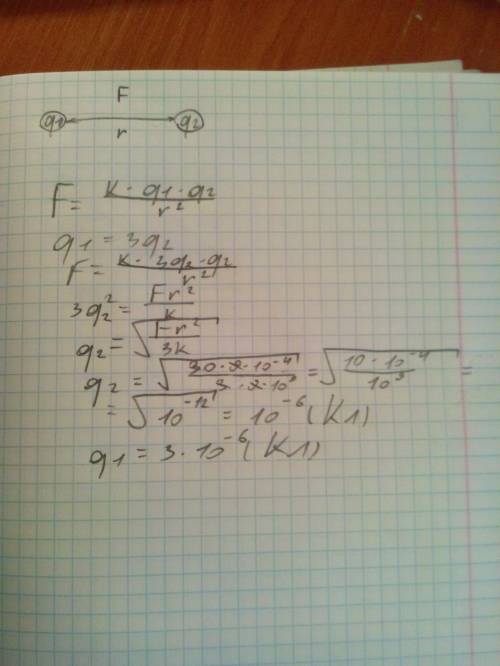 F
q1 q2
r
F = K · q1 · q2 / r²
q1 = 3q2
F = K · 3q2 · q2 / r²
3q2² = Fr² / K
q2 = √(Fr² / 3K)
q2 = √(30 · 9 · 10⁻⁴ / 3 · 9 · 10⁹) = √(10 · 10⁻⁴ / 10⁹) =
= √10⁻¹² = 10⁻⁶ (Кл)
q1 = 3 · 10⁻⁶ (Кл)